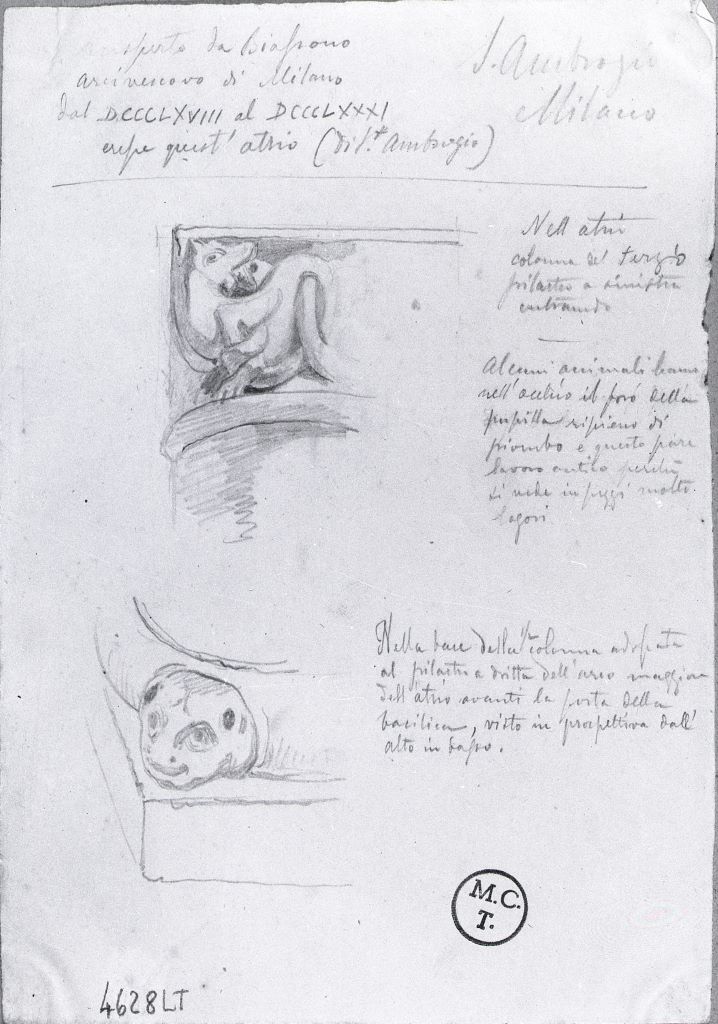 Ansperto da Biassono
arcivescovo di Milano
dal DCCCLXVIII al DCCCLXXXI
eresse quest' atrio (di S.t Ambrogio)
S. Ambrogio
Milano
Nell atrio
colonna del terzo
pilastro a sinistra
entrando
Alcuni animali hanno
nell'occhio il foro della
pupilla ripieno di
piombo e questo pare
lavoro antico perchè
si vede in pezzi molto
logori
Nella base della colonna adossata
al pilastro a dritta dell'arco maggiore
dell'atrio avanti la porta della
basilica, visto in prospettiva dall'
alto in basso.
M.C.
T.
4628LT